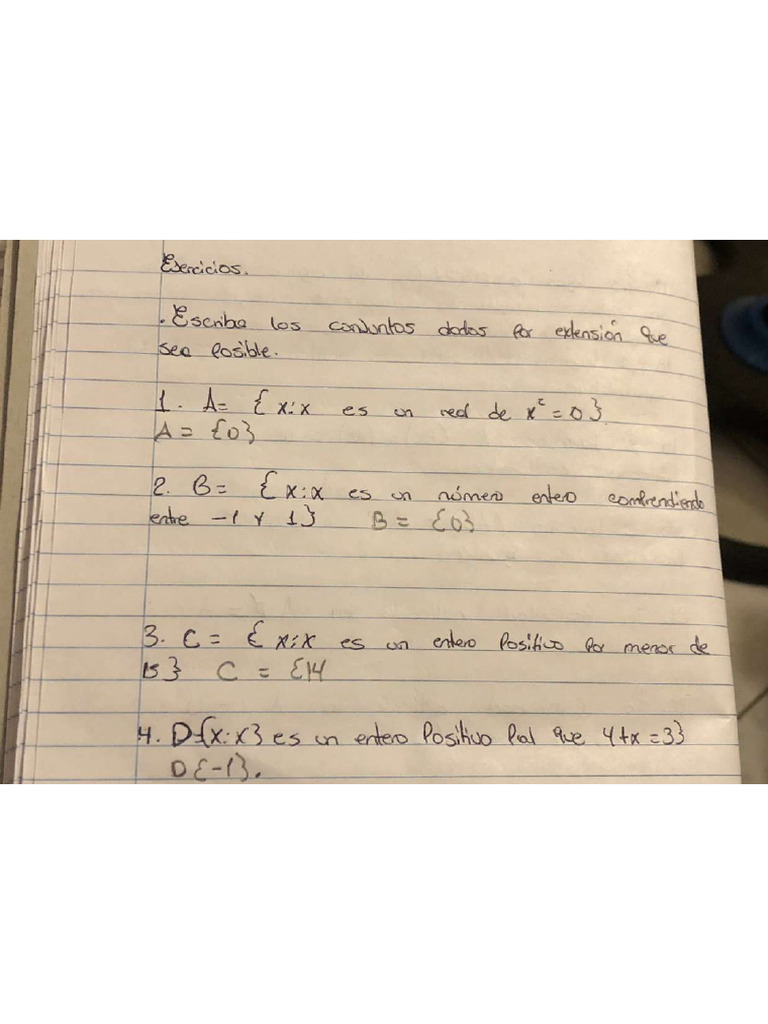 Esercicios.
. Escriba los conjuntos dados por extensión que
sea posible.
1. A= {x:x es un red de x²=0}
A = {0}
2. B= {x:x es un número entero comprendiendo
entre -1 y 1} B = {0}
3. C = {x:x es un entero positivo por menor de
15} C = {14
4. D={x:x} es un entero positivo Pal que 4+x=3}
D{-1}.